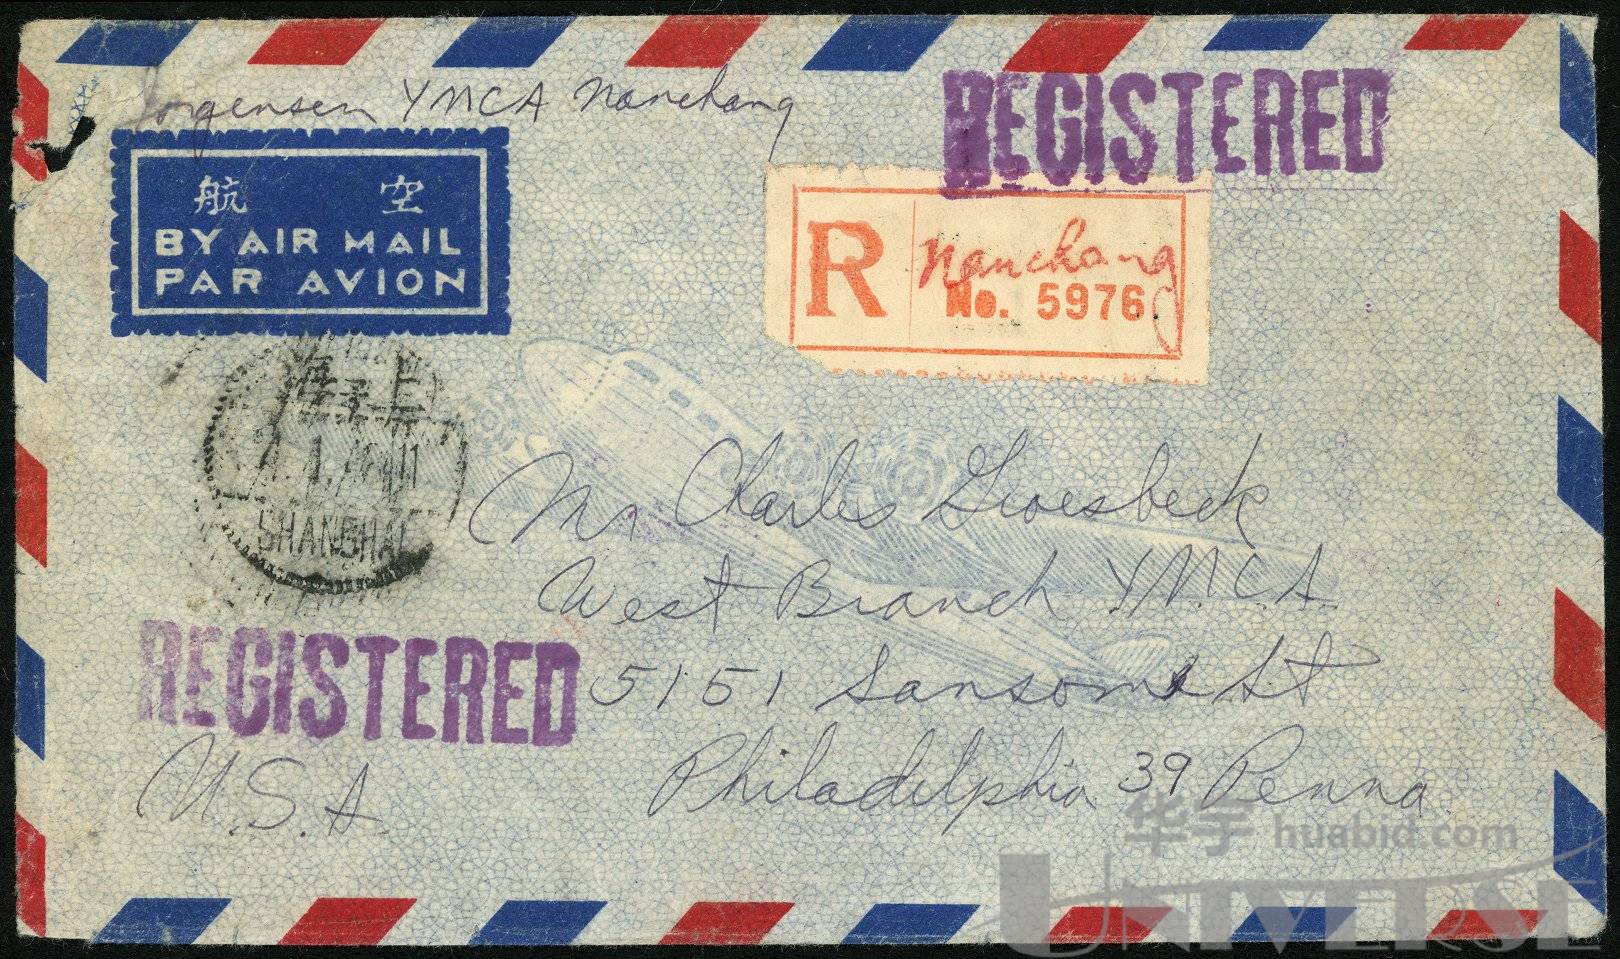 Jorgensen YMCA Nanchang
REGISTERED
航 空
BY AIR MAIL
PAR AVION
R Nanchang
No. 5976
海上
SHANGHAI
Mr Charles Groesbeck
West Branch Y.M.C.A.
REGISTERED
5151 Sansome St
Philadelphia 39 Penna
U.S.A.
华宇 huabid.com
UNIVERSE